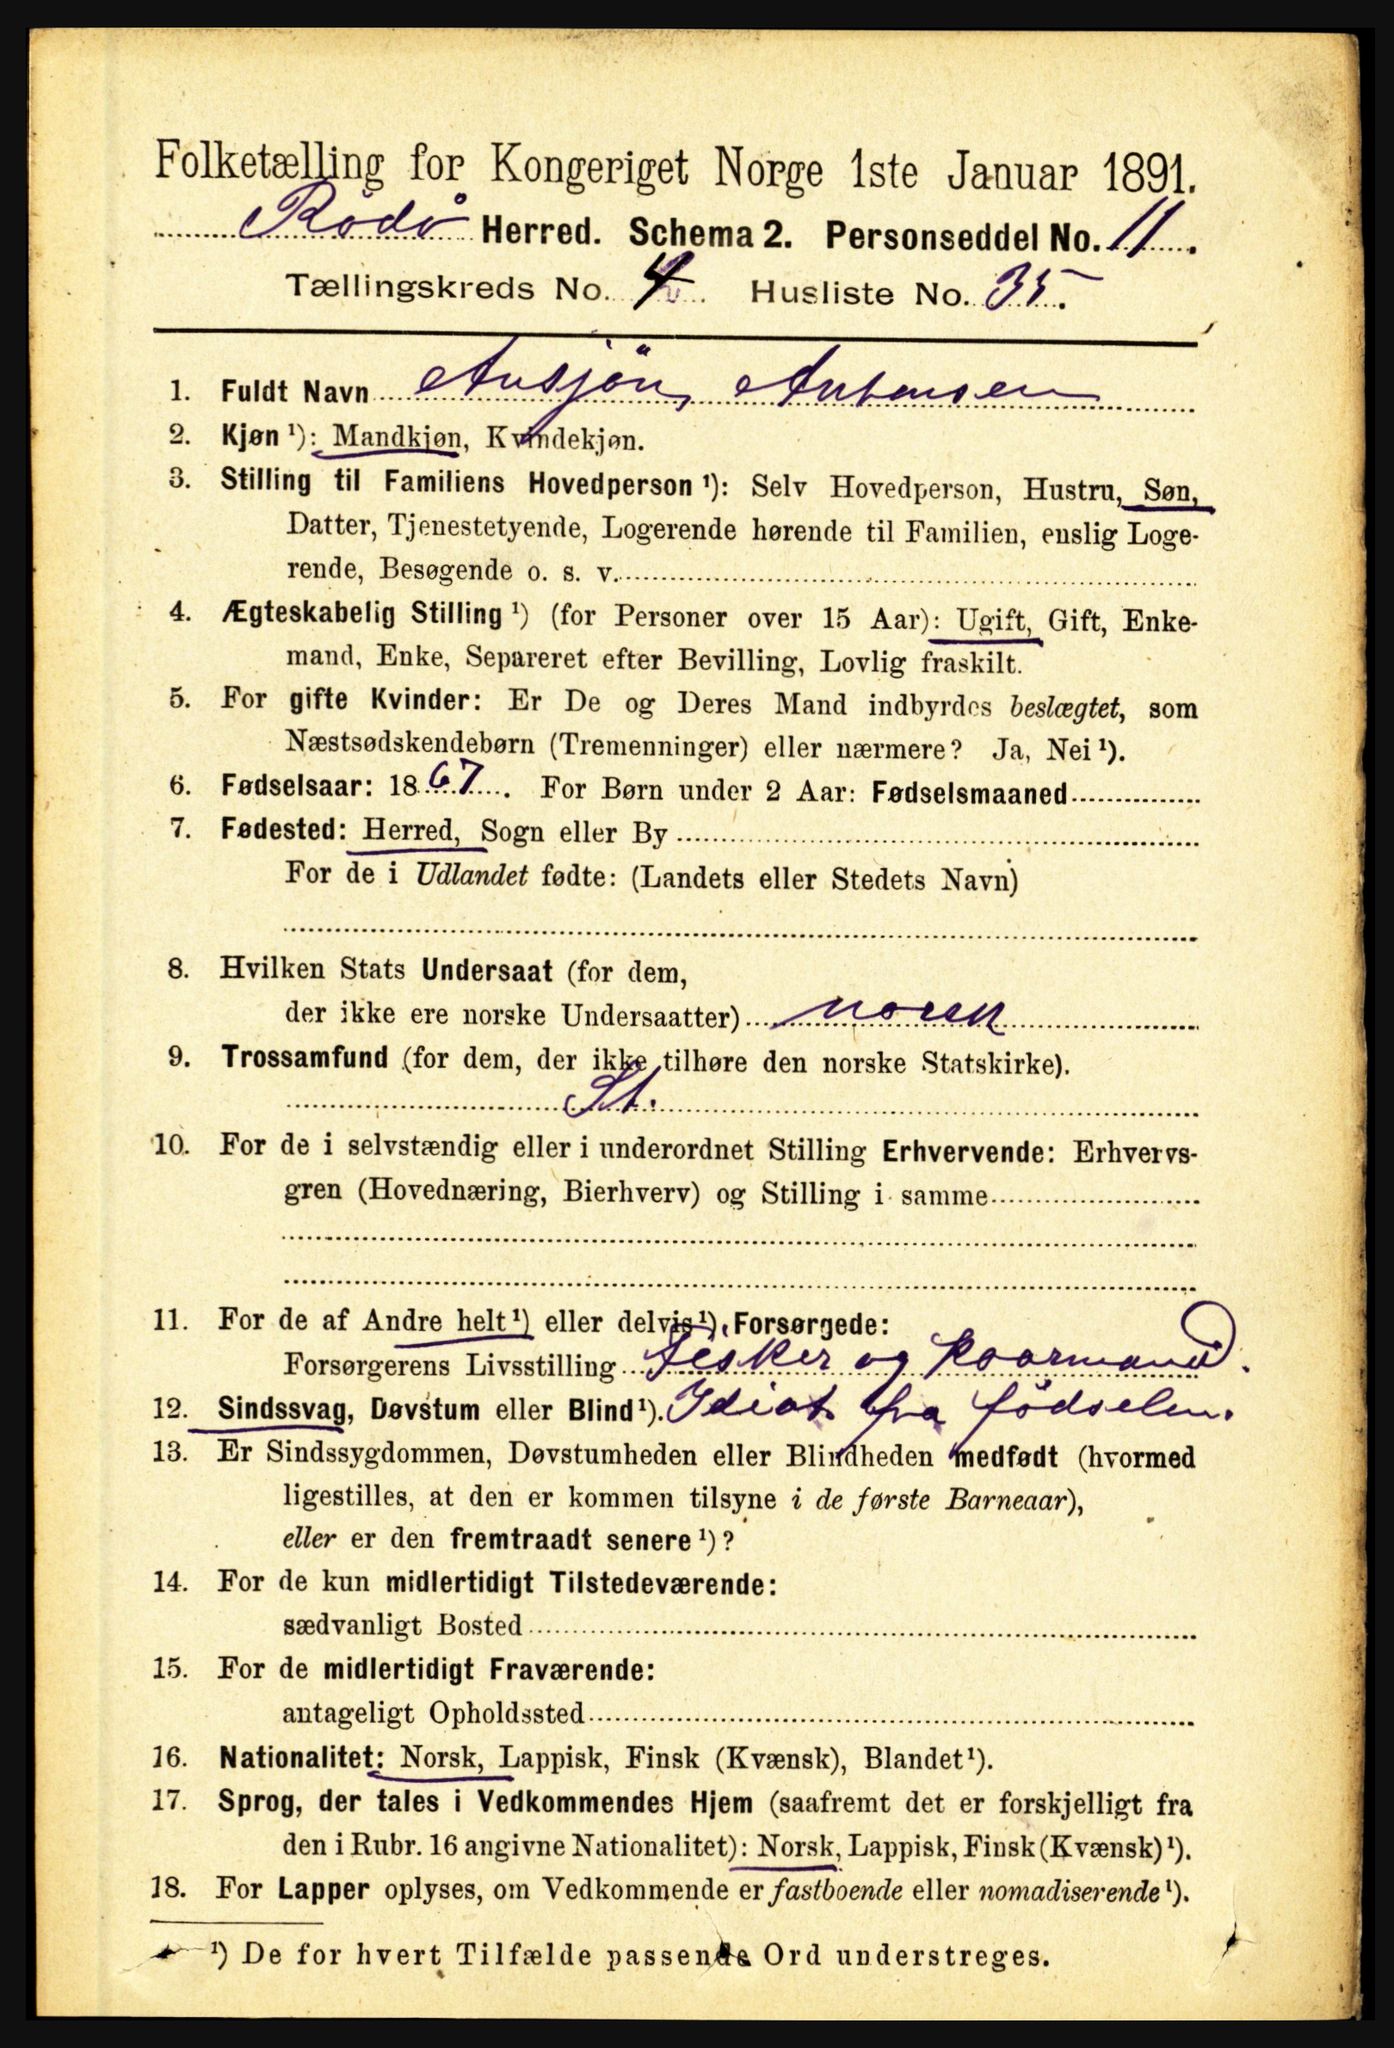 Folketælling for Kongeriget Norge 1ste Januar 1891.
Rödö Herred. Schema 2. Personseddel No. 11.
Tællingskreds No. 4. Husliste No. 35.
1. Fuldt Navn Ansjön Antonsen
2. Kjøn ¹): Mandkjøn, Kvindekjøn.
3. Stilling til Familiens Hovedperson ¹): Selv Hovedperson, Hustru, Søn,
Datter, Tjenestetyende, Logerende hørende til Familien, enslig Loge-
rende, Besøgende o. s. v.
4. Ægteskabelig Stilling ¹) (for Personer over 15 Aar): Ugift, Gift, Enke-
mand, Enke, Separeret efter Bevilling, Lovlig fraskilt.
5. For gifte Kvinder: Er De og Deres Mand indbyrdes beslægtet, som
Næstsødskendebørn (Tremenninger) eller nærmere? Ja, Nei ¹).
6. Fødselsaar: 1867. For Børn under 2 Aar: Fødselsmaaned
7. Fødested: Herred, Sogn eller By
For de i Udlandet fødte: (Landets eller Stedets Navn)
8. Hvilken Stats Undersaat (for dem,
der ikke ere norske Undersaatter) norsk
9. Trossamfund (for dem, der ikke tilhøre den norske Statskirke).
St.
10. For de i selvstændig eller i underordnet Stilling Erhvervende: Erhvervs-
gren (Hovednæring, Bierhverv) og Stilling i samme
11. For de af Andre helt ¹) eller delvis ¹), Forsørgede:
Forsørgerens Livsstilling Fisker og kaarmand.
12. Sindssvag, Døvstum eller Blind ¹). Idiot fra födselen.
13. Er Sindssygdommen, Døvstumheden eller Blindheden medfødt (hvormed
ligestilles, at den er kommen tilsyne i de første Barneaar),
eller er den fremtraadt senere ¹)?
14. For de kun midlertidigt Tilstedeværende:
sædvanligt Bosted
15. For de midlertidigt Fraværende:
antageligt Opholdssted
16. Nationalitet: Norsk, Lappisk, Finsk (Kvænsk), Blandet ¹).
17. Sprog, der tales i Vedkommendes Hjem (saafremt det er forskjelligt fra
den i Rubr. 16 angivne Nationalitet): Norsk, Lappisk, Finsk (Kvænsk) ¹).
18. For Lapper oplyses, om Vedkommende er fastboende eller nomadiserende ¹).
¹) De for hvert Tilfælde passende Ord understreges.